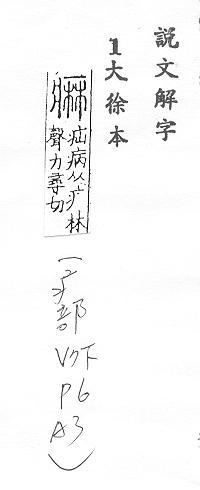 説文解字
1大徐本
痳
疝病从疒林
聲力尋切
（疒部 V7下 P6 A3）